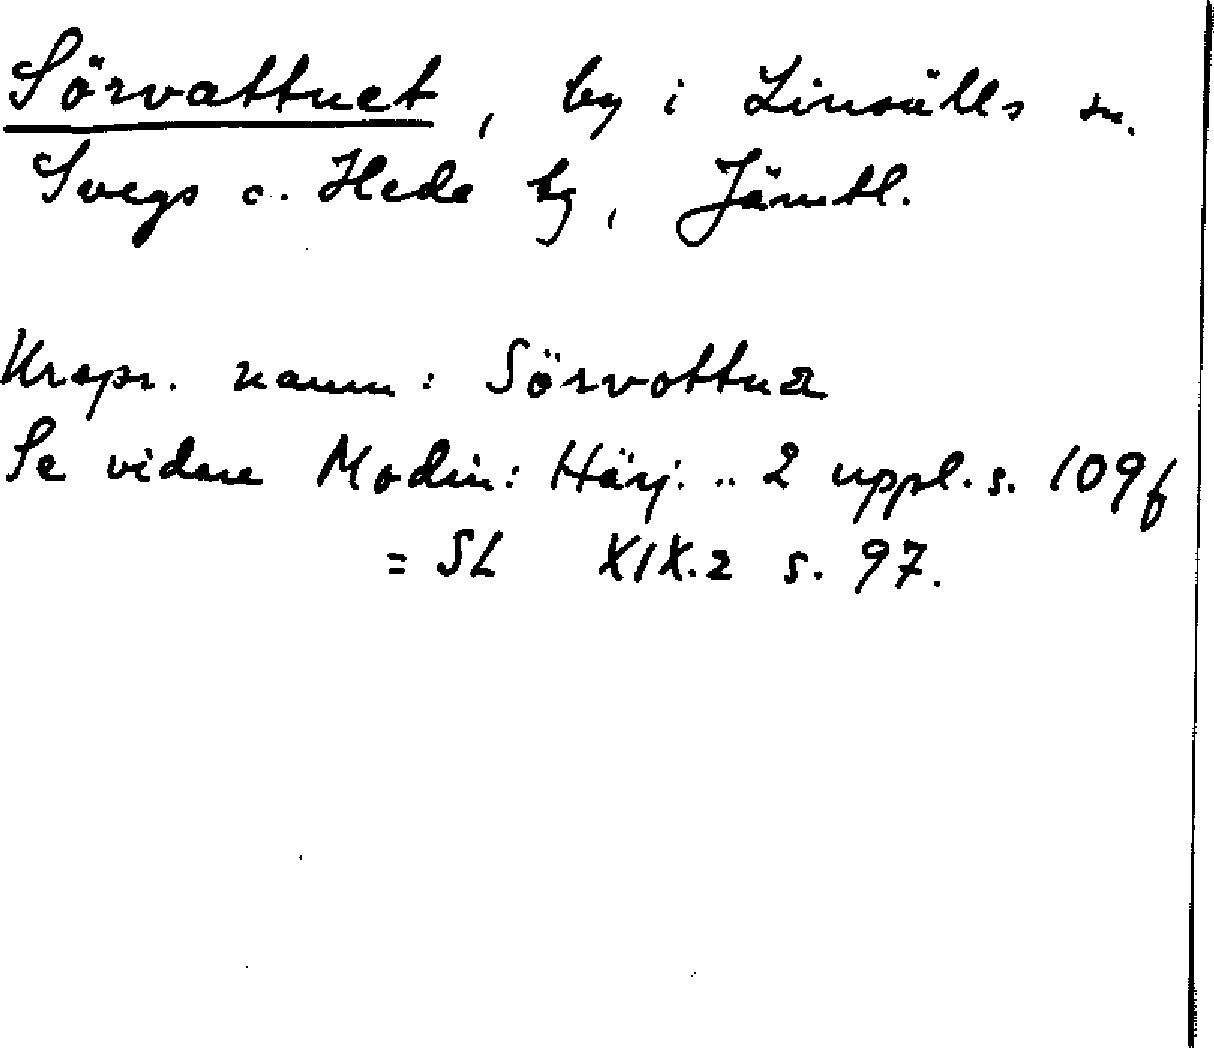 Sörvattnet, by i Linsälls sn.
Svegs o. Hede tg, Jämtl.
Krapr. namn: Sörvottna
Se vidare Modin: Härj. .. 2 uppl. s. 109f
= SL XIX.2 s. 97.